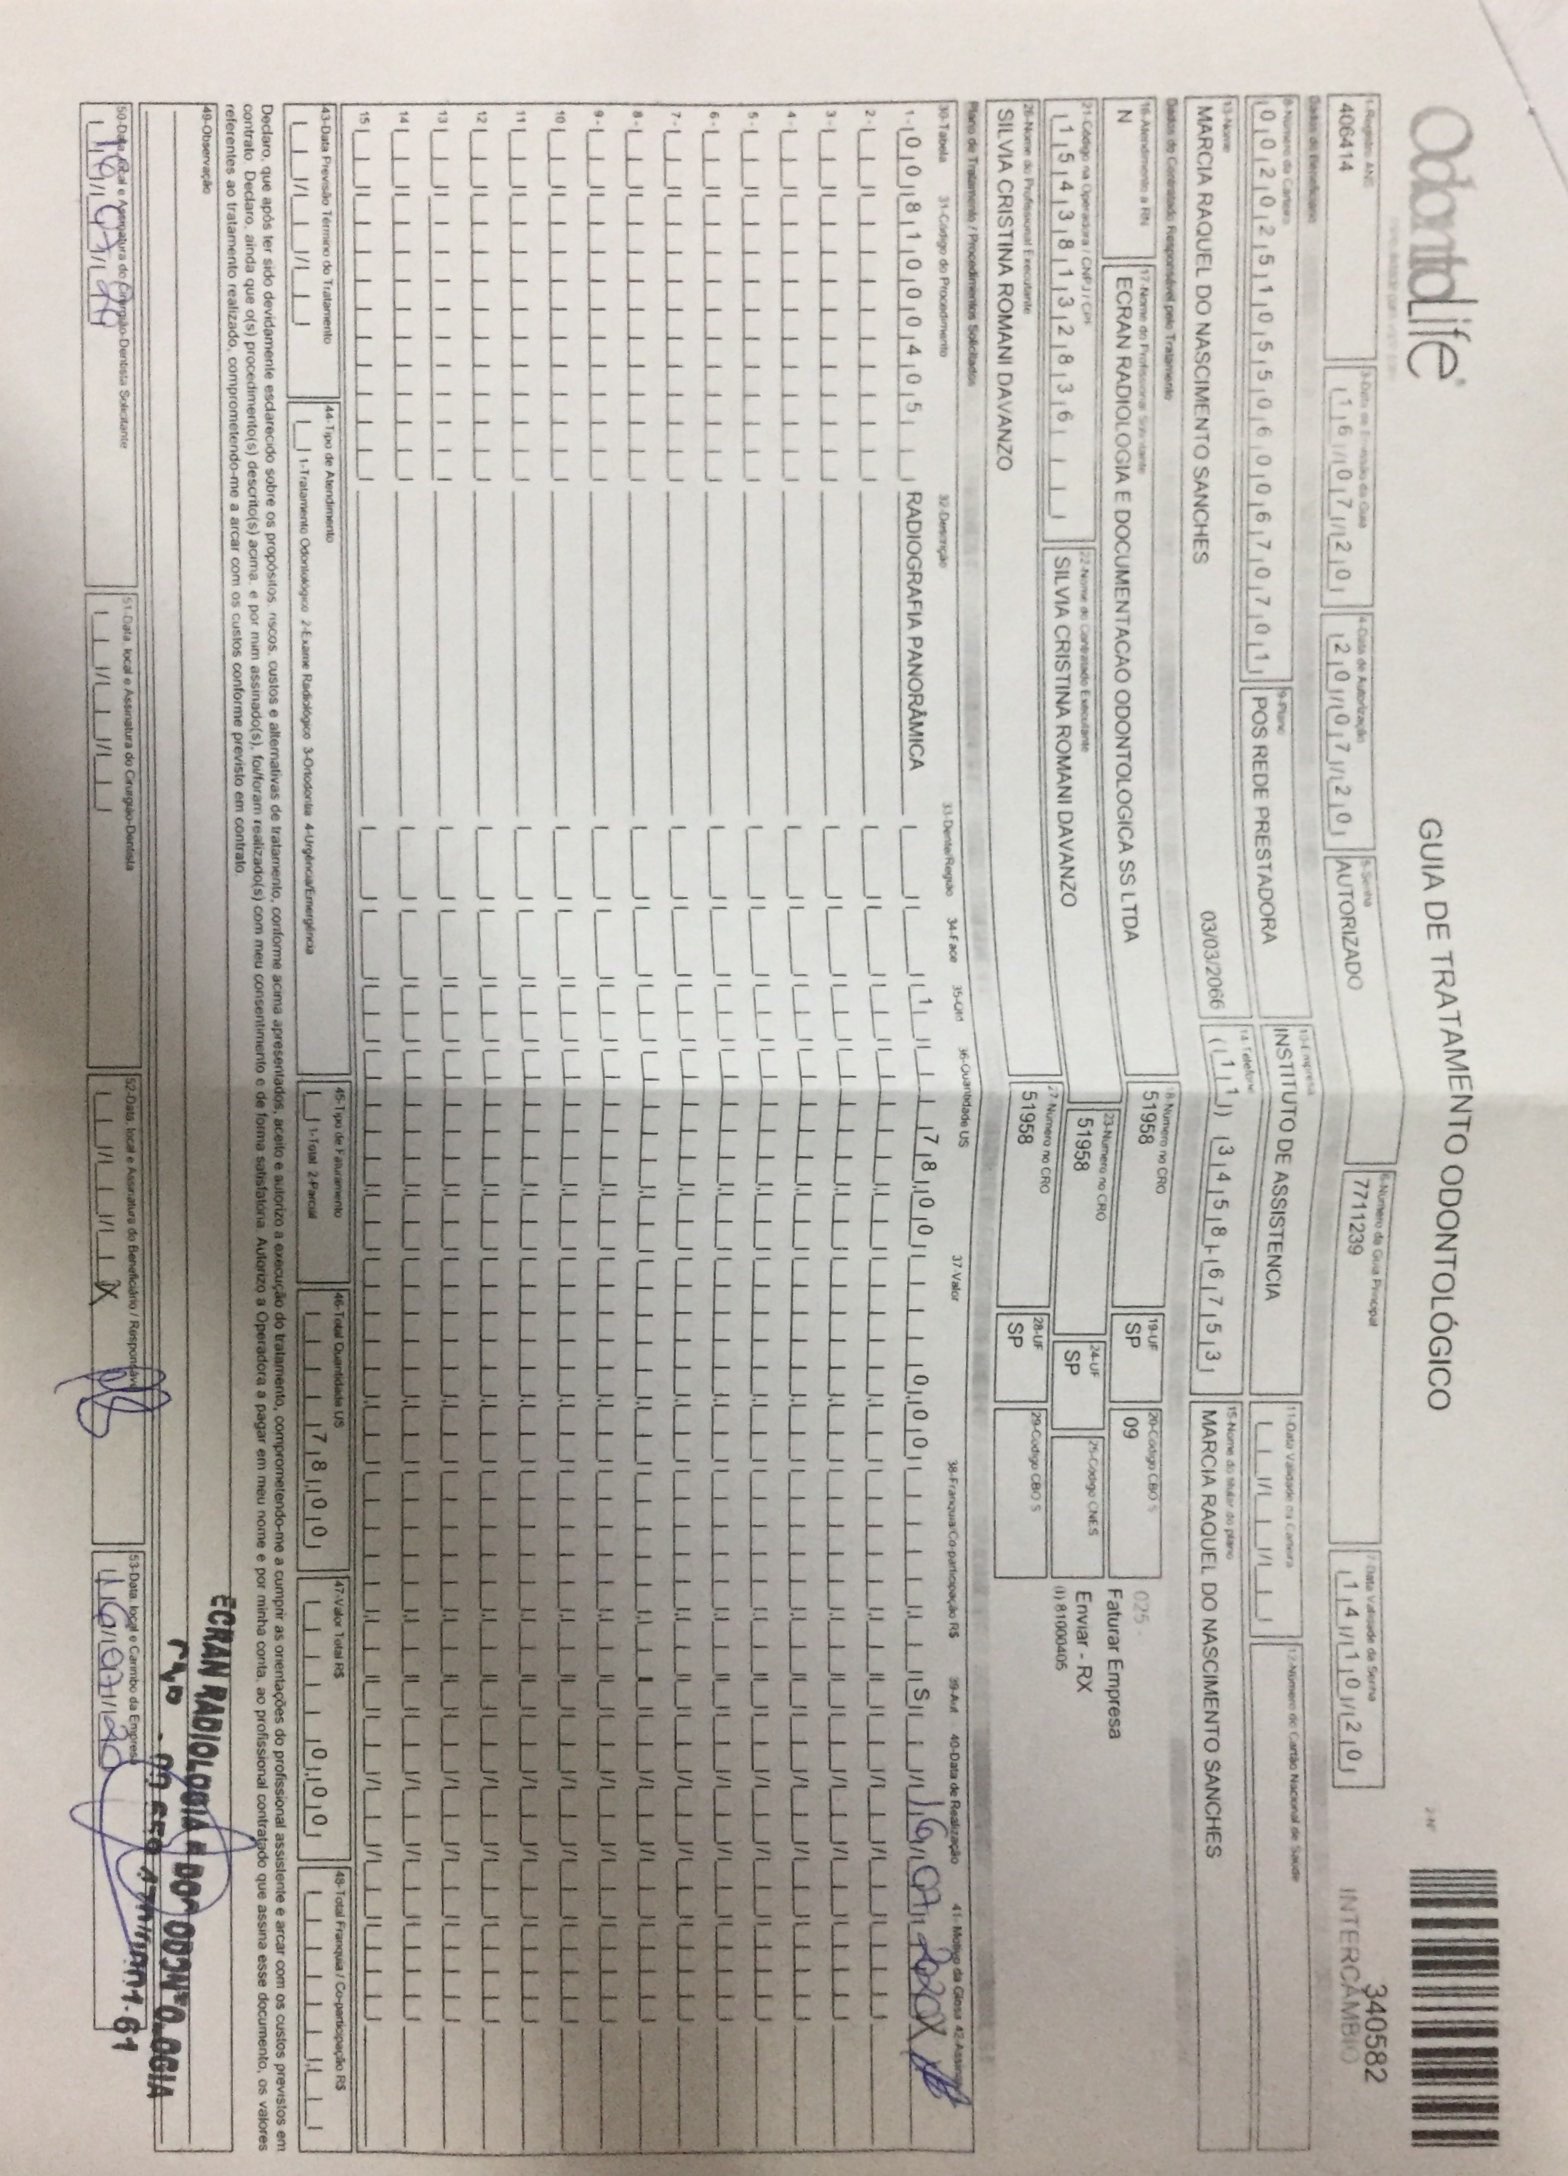 OdontoLife®
GUIA DE TRATAMENTO ODONTOLÓGICO
2-Nº
340582
INTERCÂMBIO
1-Registro ANS
406414
3-Data de Emissão da Guia
16/07/20
4-Data de Autorização
20/07/20
5-Senha
AUTORIZADO
6-Número da Guia Principal
7711239
7-Data Validade da Senha
14/10/20
Dados do Beneficiário
8-Número da Carteira
00202510550600670701
9-Plano
POS REDE PRESTADORA
10-Empresa
INSTITUTO DE ASSISTENCIA
11-Data Validade da Carteira
12-Número do Cartão Nacional de Saúde
13-Nome
MARCIA RAQUEL DO NASCIMENTO SANCHES
03/03/2066
14-Telefone
(11) 3458-6753
15-Nome do titular do plano
MARCIA RAQUEL DO NASCIMENTO SANCHES
Dados do Contratado Responsável pelo Tratamento
16-Atendimento a RN
N
17-Nome do Profissional Solicitante
ECRAN RADIOLOGIA E DOCUMENTACAO ODONTOLOGICA SS LTDA
18-Número no CRO
51958
19-UF
SP
20-Código CBO S
09
025 -
Faturar Empresa
Enviar - RX
(I) 81000405
21-Código na Operadora / CNPJ / CPF
15438132836
22-Nome do Contratado Executante
SILVIA CRISTINA ROMANI DAVANZO
23-Número no CRO
51958
24-UF
SP
25-Código CNES
26-Nome do Profissional Executante
SILVIA CRISTINA ROMANI DAVANZO
27-Número no CRO
51958
28-UF
SP
29-Código CBO S
Plano de Tratamento / Procedimentos Solicitados
30-Tabela 31-Código do Procedimento 32-Descrição 33-Dente/Região 34-Face 35-Qtd 36-Quantidade US 37-Valor 38-Franquia/Co-participação R$ 39-Aut 40-Data de Realização 41-Motivo da Glosa 42-Assinatura
1- 00 81000405 RADIOGRAFIA PANORÂMICA 1 78,00 0,00 S 16/07/2020 X
2-
3-
4-
5-
6-
7-
8-
9-
10
11
12
13
14
15
43-Data Previsão Término do Tratamento
44-Tipo de Atendimento
1-Tratamento Odontológico 2-Exame Radiológico 3-Ortodontia 4-Urgência/Emergência
45-Tipo de Faturamento
1-Total 2-Parcial
46-Total Quantidade US
78,00
47-Valor Total R$
0,00
48-Total Franquia / Co-participação R$
Declaro, que após ter sido devidamente esclarecido sobre os propósitos, riscos, custos e alternativas de tratamento, conforme acima apresentados, aceito e autorizo a execução do tratamento, comprometendo-me a cumprir as orientações do profissional assistente e arcar com os custos previstos em
contrato. Declaro, ainda que o(s) procedimento(s) descrito(s) acima, e por mim assinado(s), foi/foram realizado(s) com meu consentimento e de forma satisfatória. Autorizo a Operadora a pagar em meu nome e por minha conta, ao profissional contratado que assina esse documento, os valores
referentes ao tratamento realizado, comprometendo-me a arcar com os custos conforme previsto em contrato.
49-Observação
ECRAN RADIOLOGIA
50-Data, local e Assinatura do Cirurgião-Dentista Solicitante
16/07/20
51-Data, local e Assinatura do Cirurgião-Dentista
52-Data, local e Assinatura do Beneficiário / Responsável
X
53-Data, local e Carimbo da Empresa
16/07/20